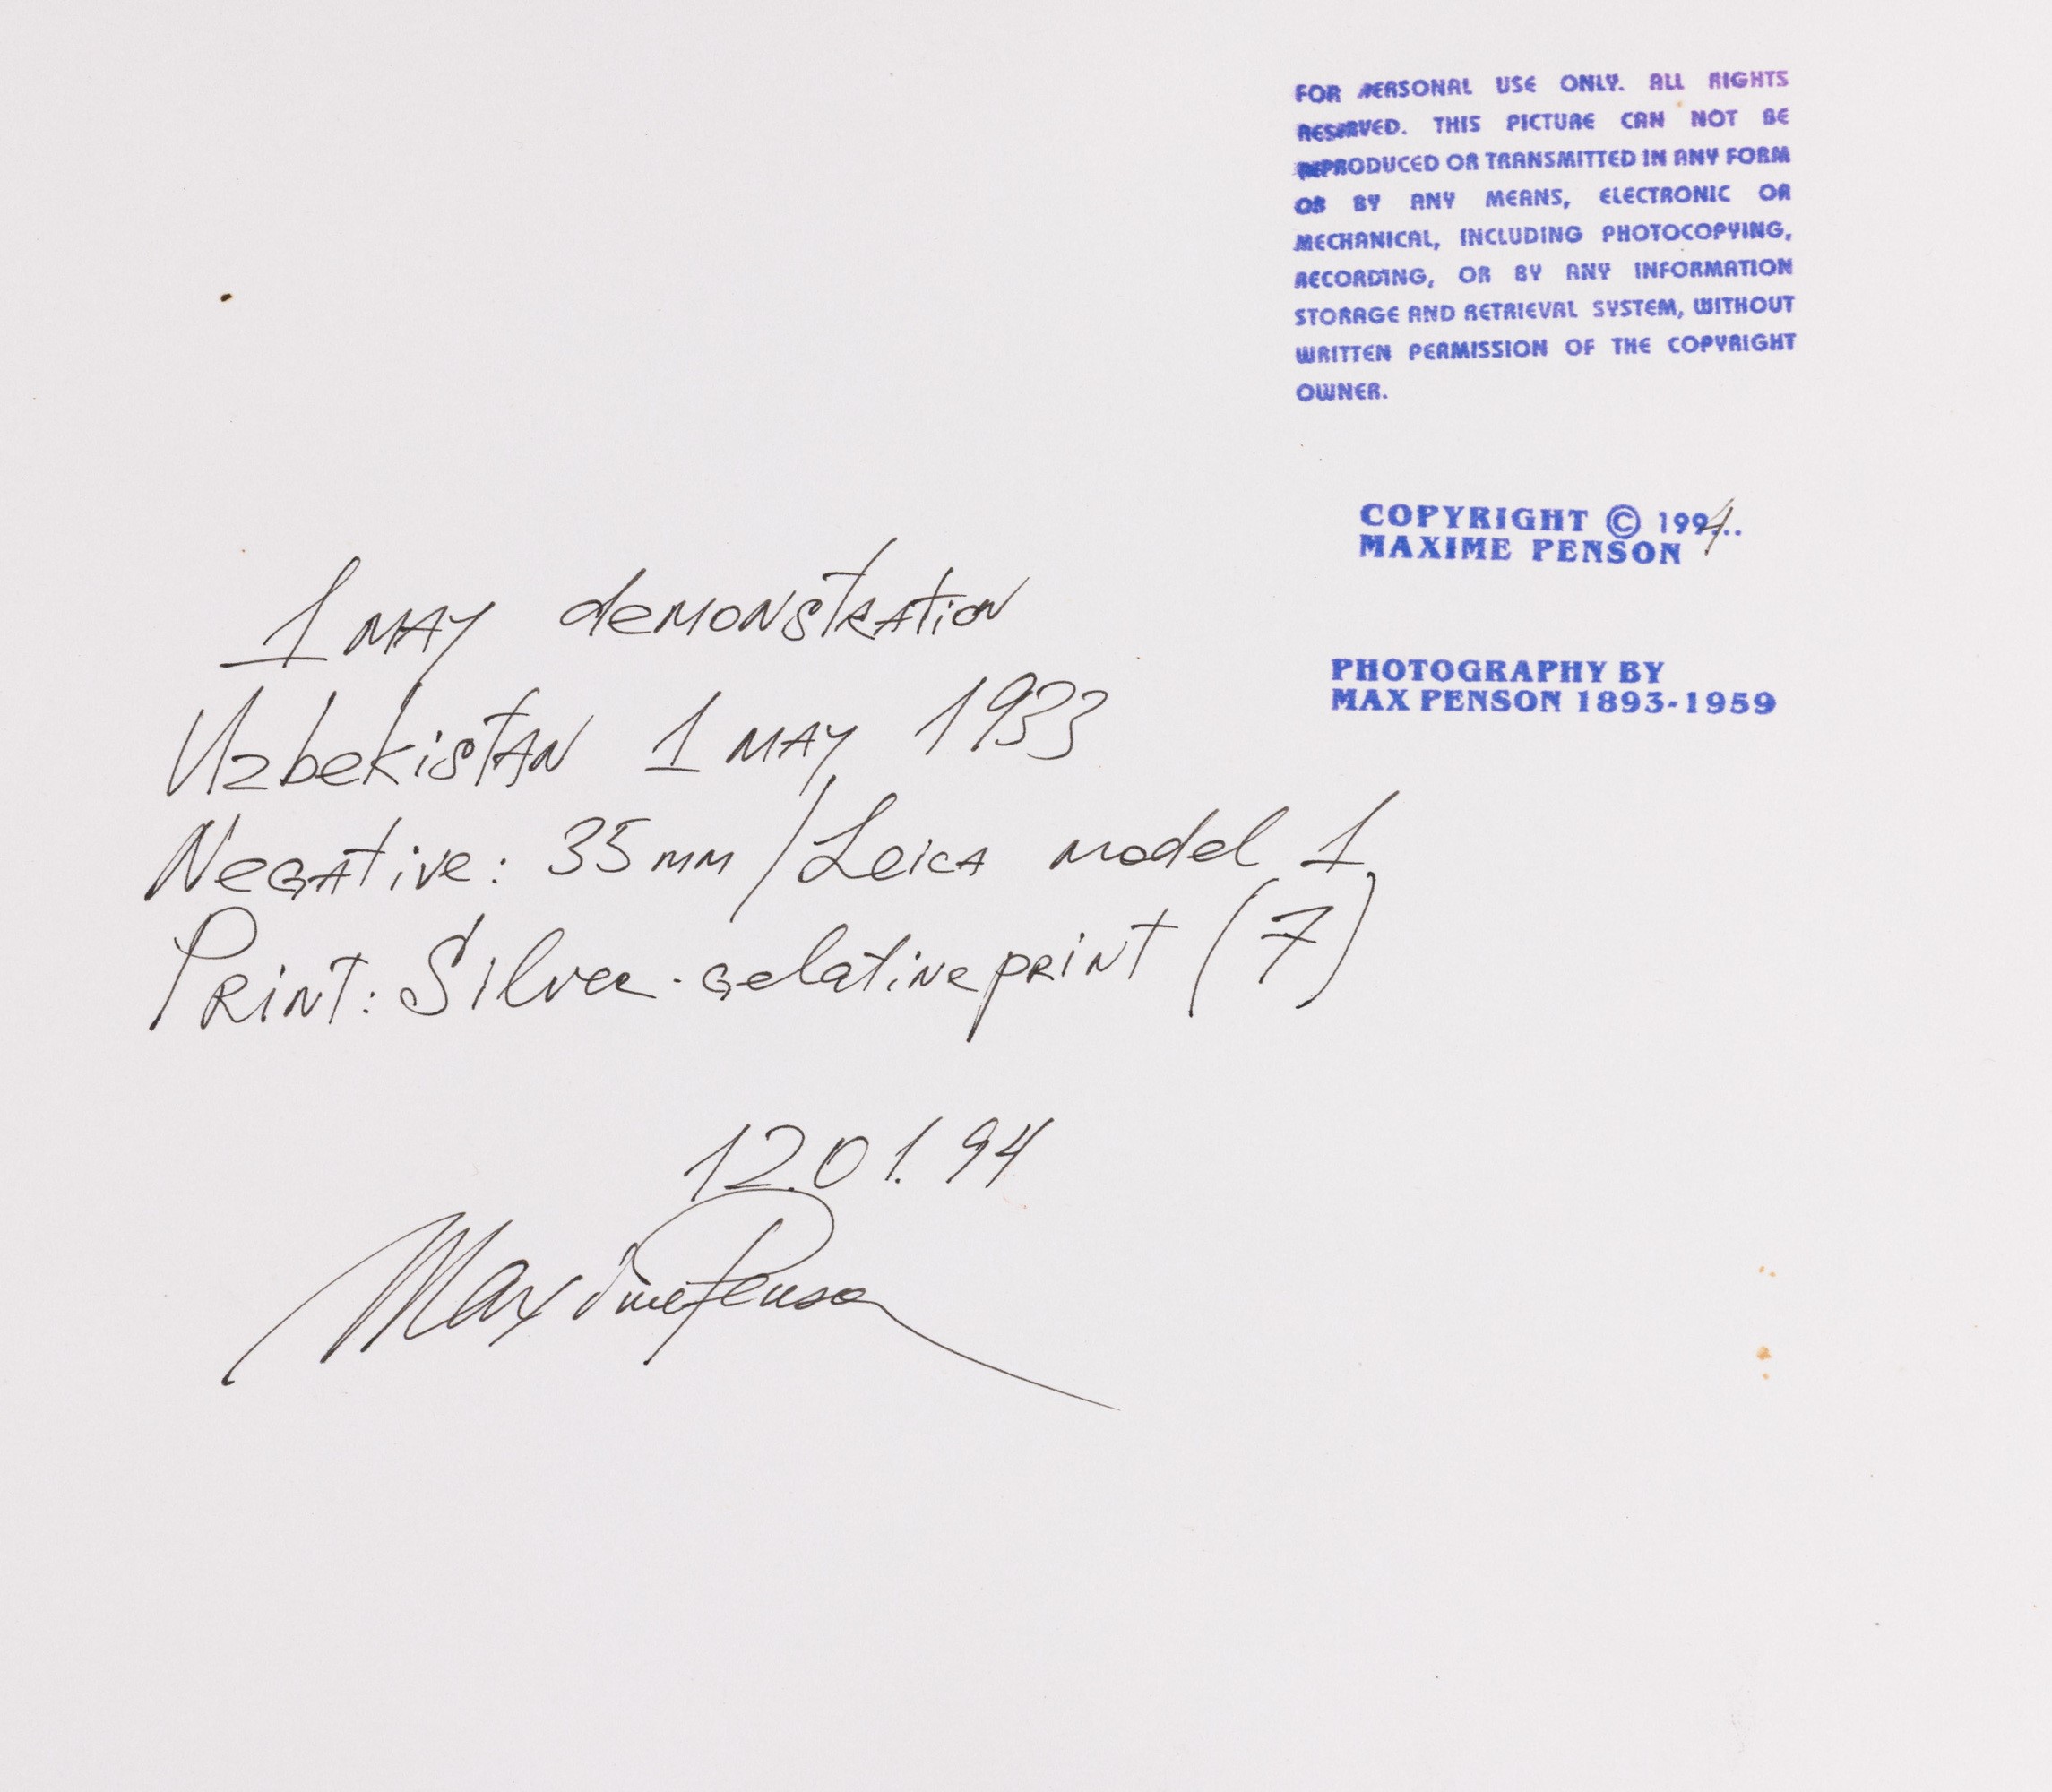 FOR PERSONAL USE ONLY. ALL RIGHTS
RESERVED. THIS PICTURE CAN NOT BE
REPRODUCED OR TRANSMITTED IN ANY FORM
OR BY ANY MEANS, ELECTRONIC OR
MECHANICAL, INCLUDING PHOTOCOPYING,
RECORDING, OR BY ANY INFORMATION
STORAGE AND RETRIEVAL SYSTEM, WITHOUT
WRITTEN PERMISSION OF THE COPYRIGHT
OWNER.
COPYRIGHT © 1994..
MAXIME PENSON
PHOTOGRAPHY BY
MAX PENSON 1893-1959
1 MAY demonstration
Uzbekistan 1 MAY 1933
Negative: 35mm / Leica model 1
Print: Silver-gelatine print (7)
12.01.94
Maxime Penson